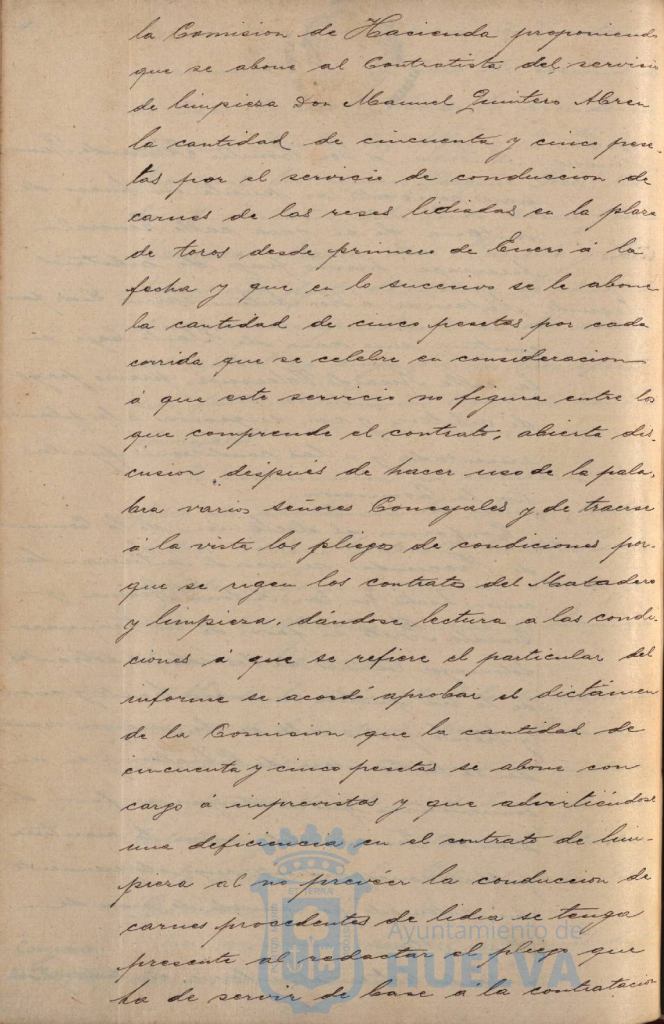 la Comision de Hacienda proponiendo
que se abone al Contratista del servicio
de limpieza Don Manuel Quintero Abreu
la cantidad de cincuenta y cinco pese-
tas por el servicio de conduccion de
carnes de las reses lidiadas en la plaza
de toros desde primero de Enero á la
fecha y que en lo sucesivo se le abone
la cantidad de cinco pesetas por cada
corrida que se celebre en consideracion
á que este servicio no figura entre los
que comprende el contrato, abierta dis-
cusion después de hacer uso de la pala-
bra varios señores Concejales y de traerse
á la vista los pliegos de condiciones por-
que se rigen los contratos del Matadero
y limpieza, dándose lectura a las condi-
ciones á que se refiere el particular del
informe se acordó aprobar el dictámen
de la Comision que la cantidad de
cincuenta y cinco pesetas se abone con
cargo á imprevistos y que advirtiéndose
una deficiencia en el contrato de lim-
pieza al no prevéer la conduccion de
carnes procedentes de lidia se tenga
presente al redactar el pliego que
ha de servir de base a la contratacion
Ayuntamiento de
HUELVA